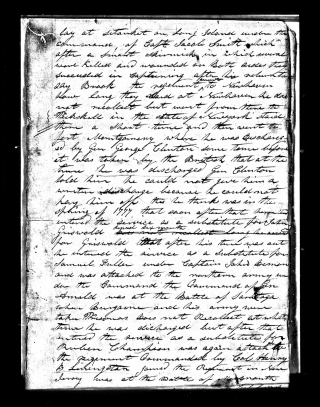 lay at Setauket on Long Island under the
Command of Capt Jacob Smith which
after a Smart Skirmish in which several
were killed and wounded on both sides they
succeeded in capturing after his
day Brook the regiment to Newhaven
how long they at Newhaven he does
not recollect but went from there to
Pickskill in the state of Newyork Staid
there a Short time and then went to
fort Montgomery where he was Discharg
ed by Gen George Clinton some time before
it was taken by the British that at the
time he was discharged Gen Clinton
told him he could not give him a
written discharge because he could not
pay him off this he thinks was in the
Spring of 1777 that soon after that
entered the service as a Substitute for
Griswold
for Griswold that after his time was out
he entered the service as a Substitute for
Samuel Fuller under Captain John
and was attached to the northern army un
der the Command of Gen
Arnold was at the Battle of Saratoga
when Burgoine and his army were
taken does not Recollect at what
time he was discharged but after that
entered the service as a substitute for
Reuben Champion was again attached to
the regiment Commanded by Col Henry
B Livingston joined the Regiment in New
Jersey was at the Battle of Monmouth